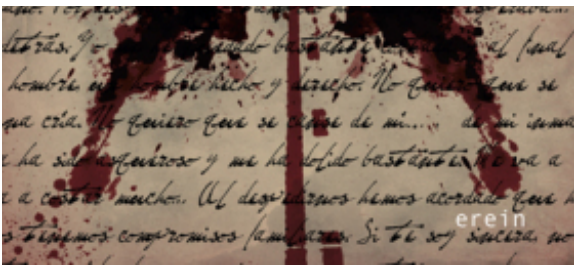 detrás. Yo bastante al final
hombre en hombre hecho y derecho. No quiero que se
una cría. No quiero que se canse de mi..... de mi inma
ha sido asqueroso y me ha dolido bastante. Me va a
a costar mucho. Al despedirnos hemos acordado que
s tenemos compromisos familiares. Si te soy sincera, no
erein